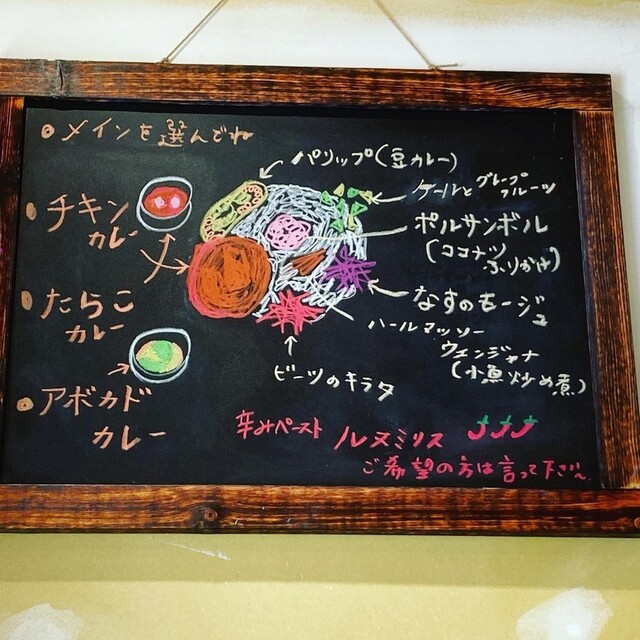 メインを選んでね
チキン
カレー
たらこ
カレー
アボカド
カレー
パリップ(豆カレー)
ケールとグレープ
フルーツ
ポルサンボル
(ココナツ
ふりかけ)
なすのモージュ
ハールマッソー
ウェンジャナ
(小魚炒め煮)
ビーツのキラタ
辛みペースト ルヌミリス
ご希望の方は言って下さい